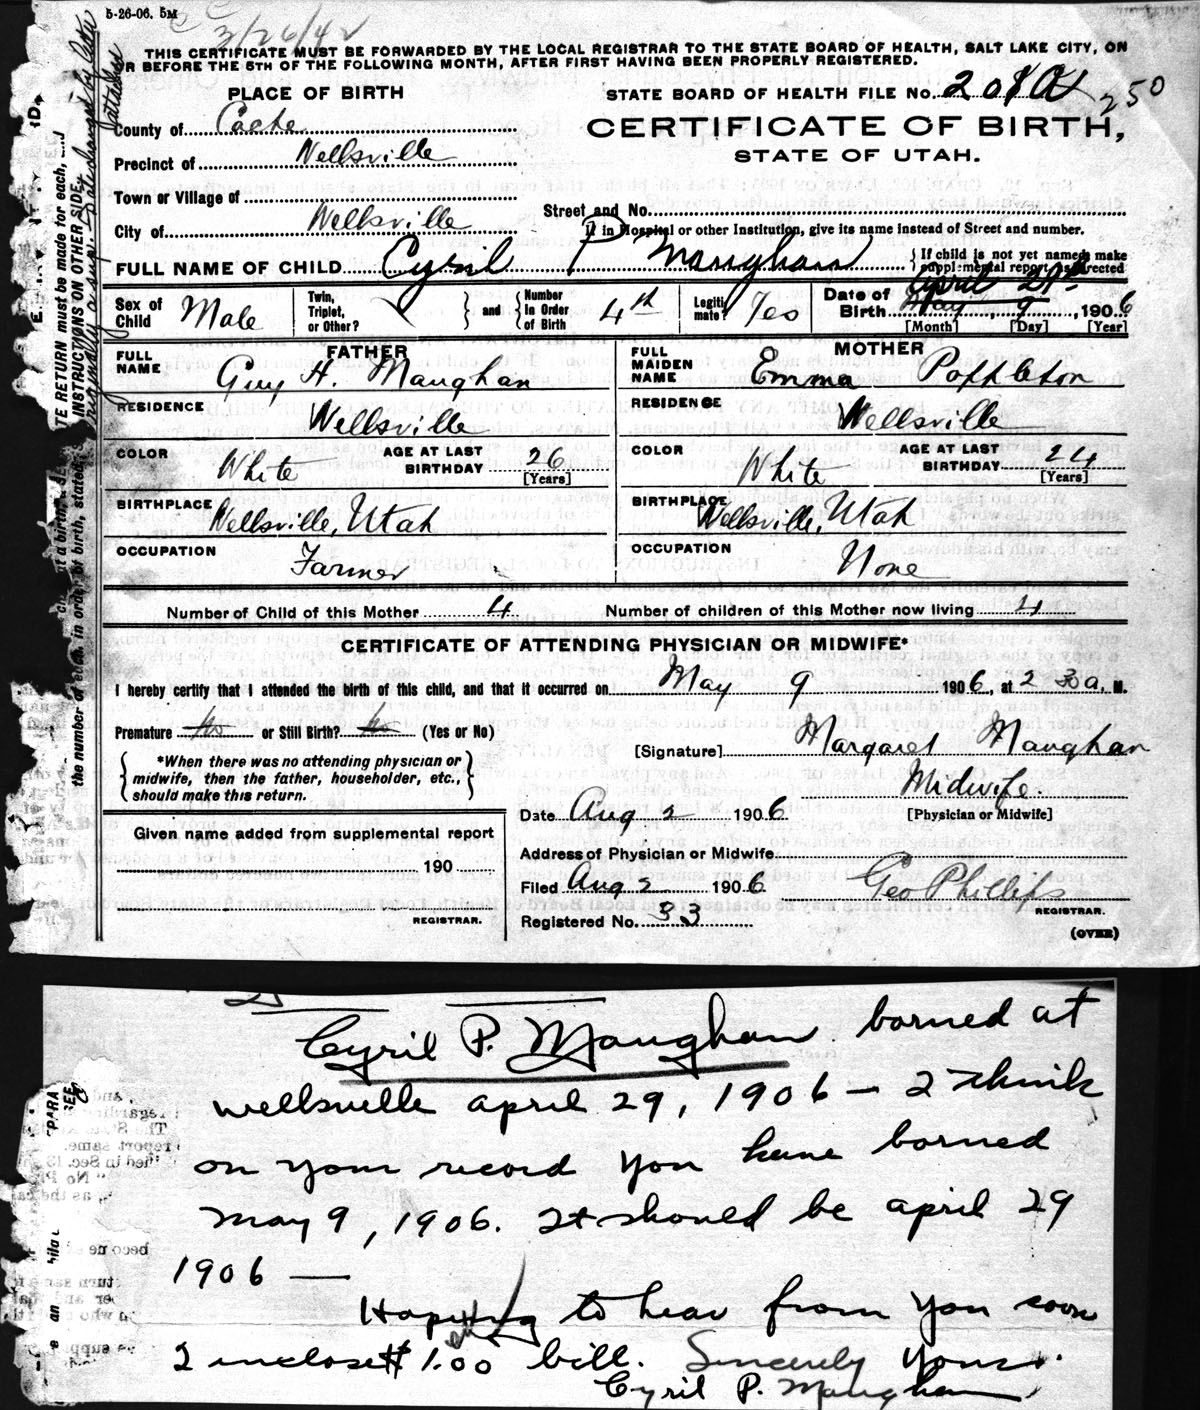 5-26-06. 5M
3/26/42
THIS CERTIFICATE MUST BE FORWARDED BY THE LOCAL REGISTRAR TO THE STATE BOARD OF HEALTH, SALT LAKE CITY, ON
OR BEFORE THE 5TH OF THE FOLLOWING MONTH, AFTER FIRST HAVING BEEN PROPERLY REGISTERED.
PLACE OF BIRTH
STATE BOARD OF HEALTH FILE No. 250
County of Cache
CERTIFICATE OF BIRTH,
STATE OF UTAH.
Precinct of Wellsville
Town or Village of
Street and No.
City of Wellsville
If in Hospital or other Institution, give its name instead of Street and number.
FULL NAME OF CHILD Cyril P Maughan { If child is not yet named make supplemental report as directed
Sex of Child Male Twin, Triplet, or Other? and Number in Order of Birth 4th Legitimate? Yes Date of Birth April 29th May 9, 1906
[Month] [Day] [Year]
FATHER
MOTHER
FULL NAME Guy H. Maughan
FULL MAIDEN NAME Emma Poppleton
RESIDENCE Wellsville
RESIDENCE Wellsville
COLOR White AGE AT LAST BIRTHDAY 26 [Years]
COLOR White AGE AT LAST BIRTHDAY 24 [Years]
BIRTHPLACE Wellsville, Utah
BIRTHPLACE Wellsville, Utah
OCCUPATION Farmer
OCCUPATION None
Number of Child of this Mother 4 Number of children of this Mother now living 4
CERTIFICATE OF ATTENDING PHYSICIAN OR MIDWIFE*
I hereby certify that I attended the birth of this child, and that it occurred on May 9 1906, at 2 30 a. M.
Premature No or Still Birth? No (Yes or No)
[Signature] Margaret Maughan
*When there was no attending physician or
midwife, then the father, householder, etc.,
should make this return.
Midwife.
[Physician or Midwife]
Date Aug 2 1906
Given name added from supplemental report
190
REGISTRAR.
Address of Physician or Midwife
Filed Aug 2 1906 Geo Phillips
REGISTRAR.
Registered No. 33
(OVER)
TE RETURN must be made for each,
INSTRUCTIONS ON OTHER SIDE.
the number of each, in order of birth, stated
Cyril P. Maughan borned at
wellsville april 29, 1906 — I think
on your record you have borned
May 9, 1906. It should be april 29
1906 —
Hoping to hear from you soon
I inclose $1.00 bill. Sincerely yours.
Cyril P. Maughan